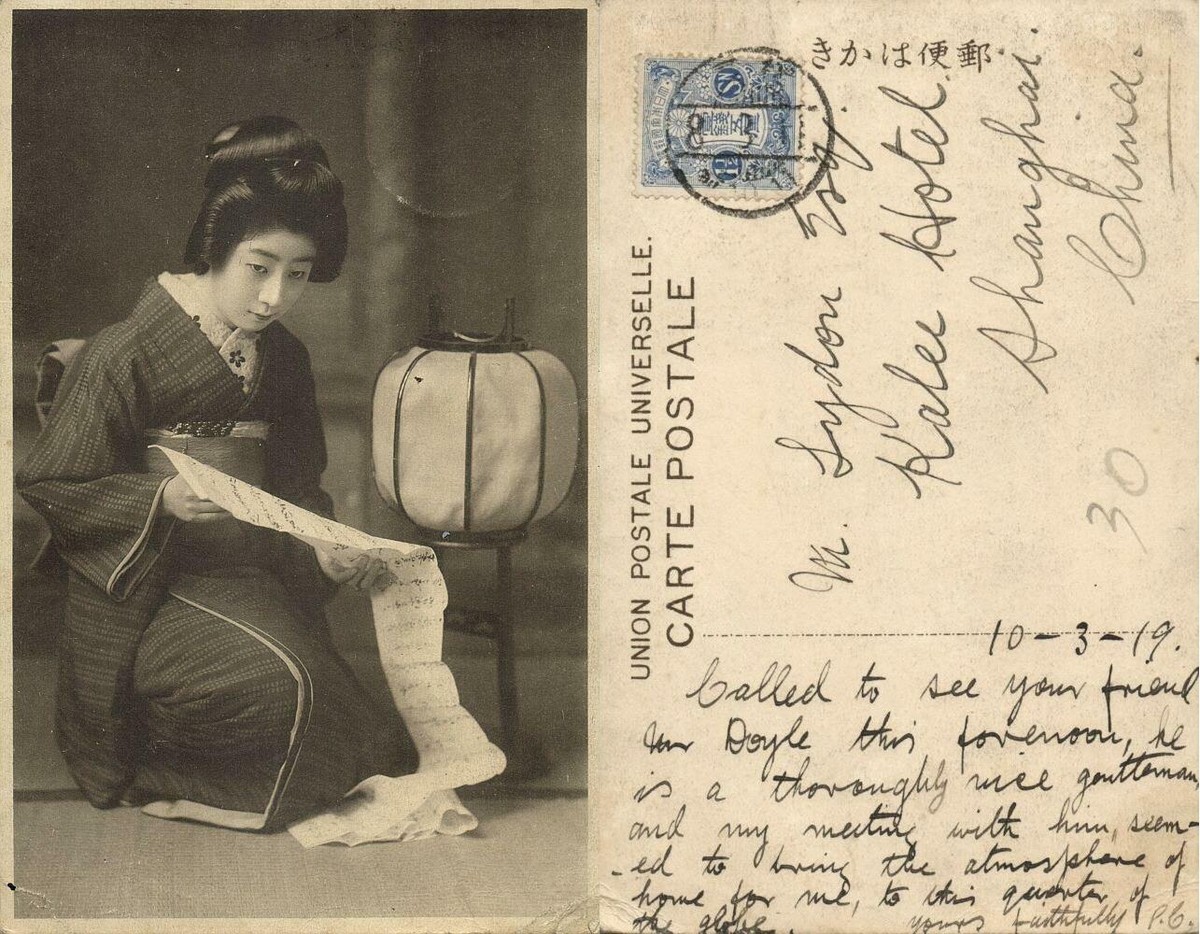 きかは便郵
UNION POSTALE UNIVERSELLE.
CARTE POSTALE
M. Lydon Esq.
Kalee Hotel.
Shanghai.
China.
30
10-3-19.
Called to see your friend
Mr Doyle this forenoon, he
is a thoroughly nice gentleman
and my meeting with him, seem-
-ed to bring the atmosphere of
home for me, to this quarter of
the globe.
yours faithfully P.C.